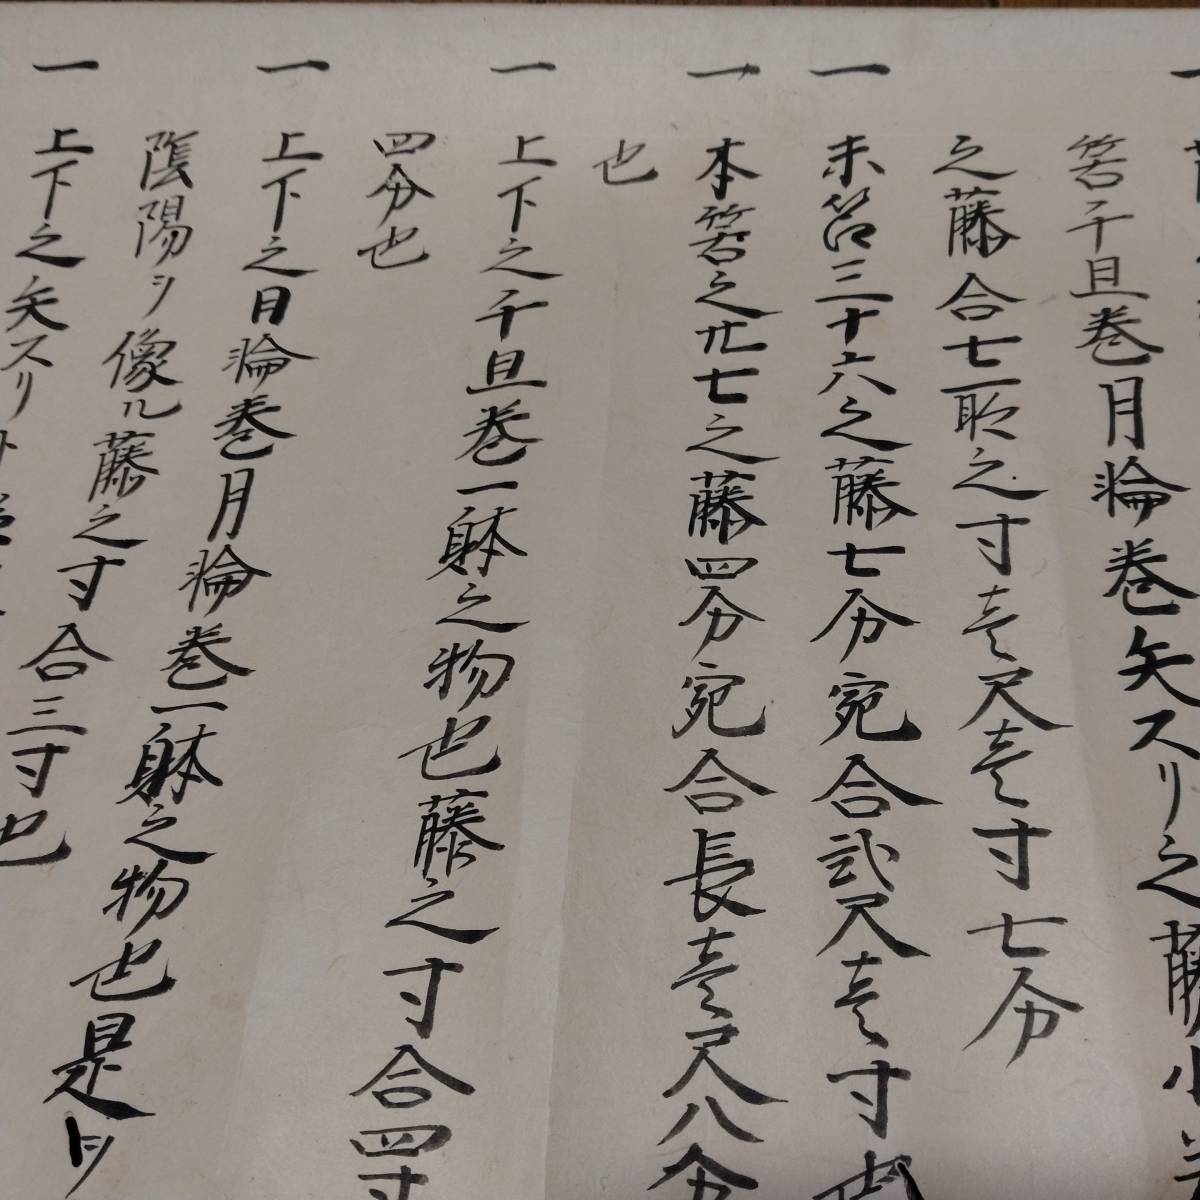 筈千旦巻月輪巻矢スリ之藤
之藤合七所之寸壱尺壱寸七分
一 末筈三十六之藤七分宛合弐尺壱寸
一 本筈之廿七之藤四分宛合長壱尺八分
也
一 上下之千旦巻一躰之物也藤之寸合四寸
四分也
一 上下之日輪巻月輪巻一躰之物也是
陰陽ヲ像ル藤之寸合三寸也
一 上下之矢スリ